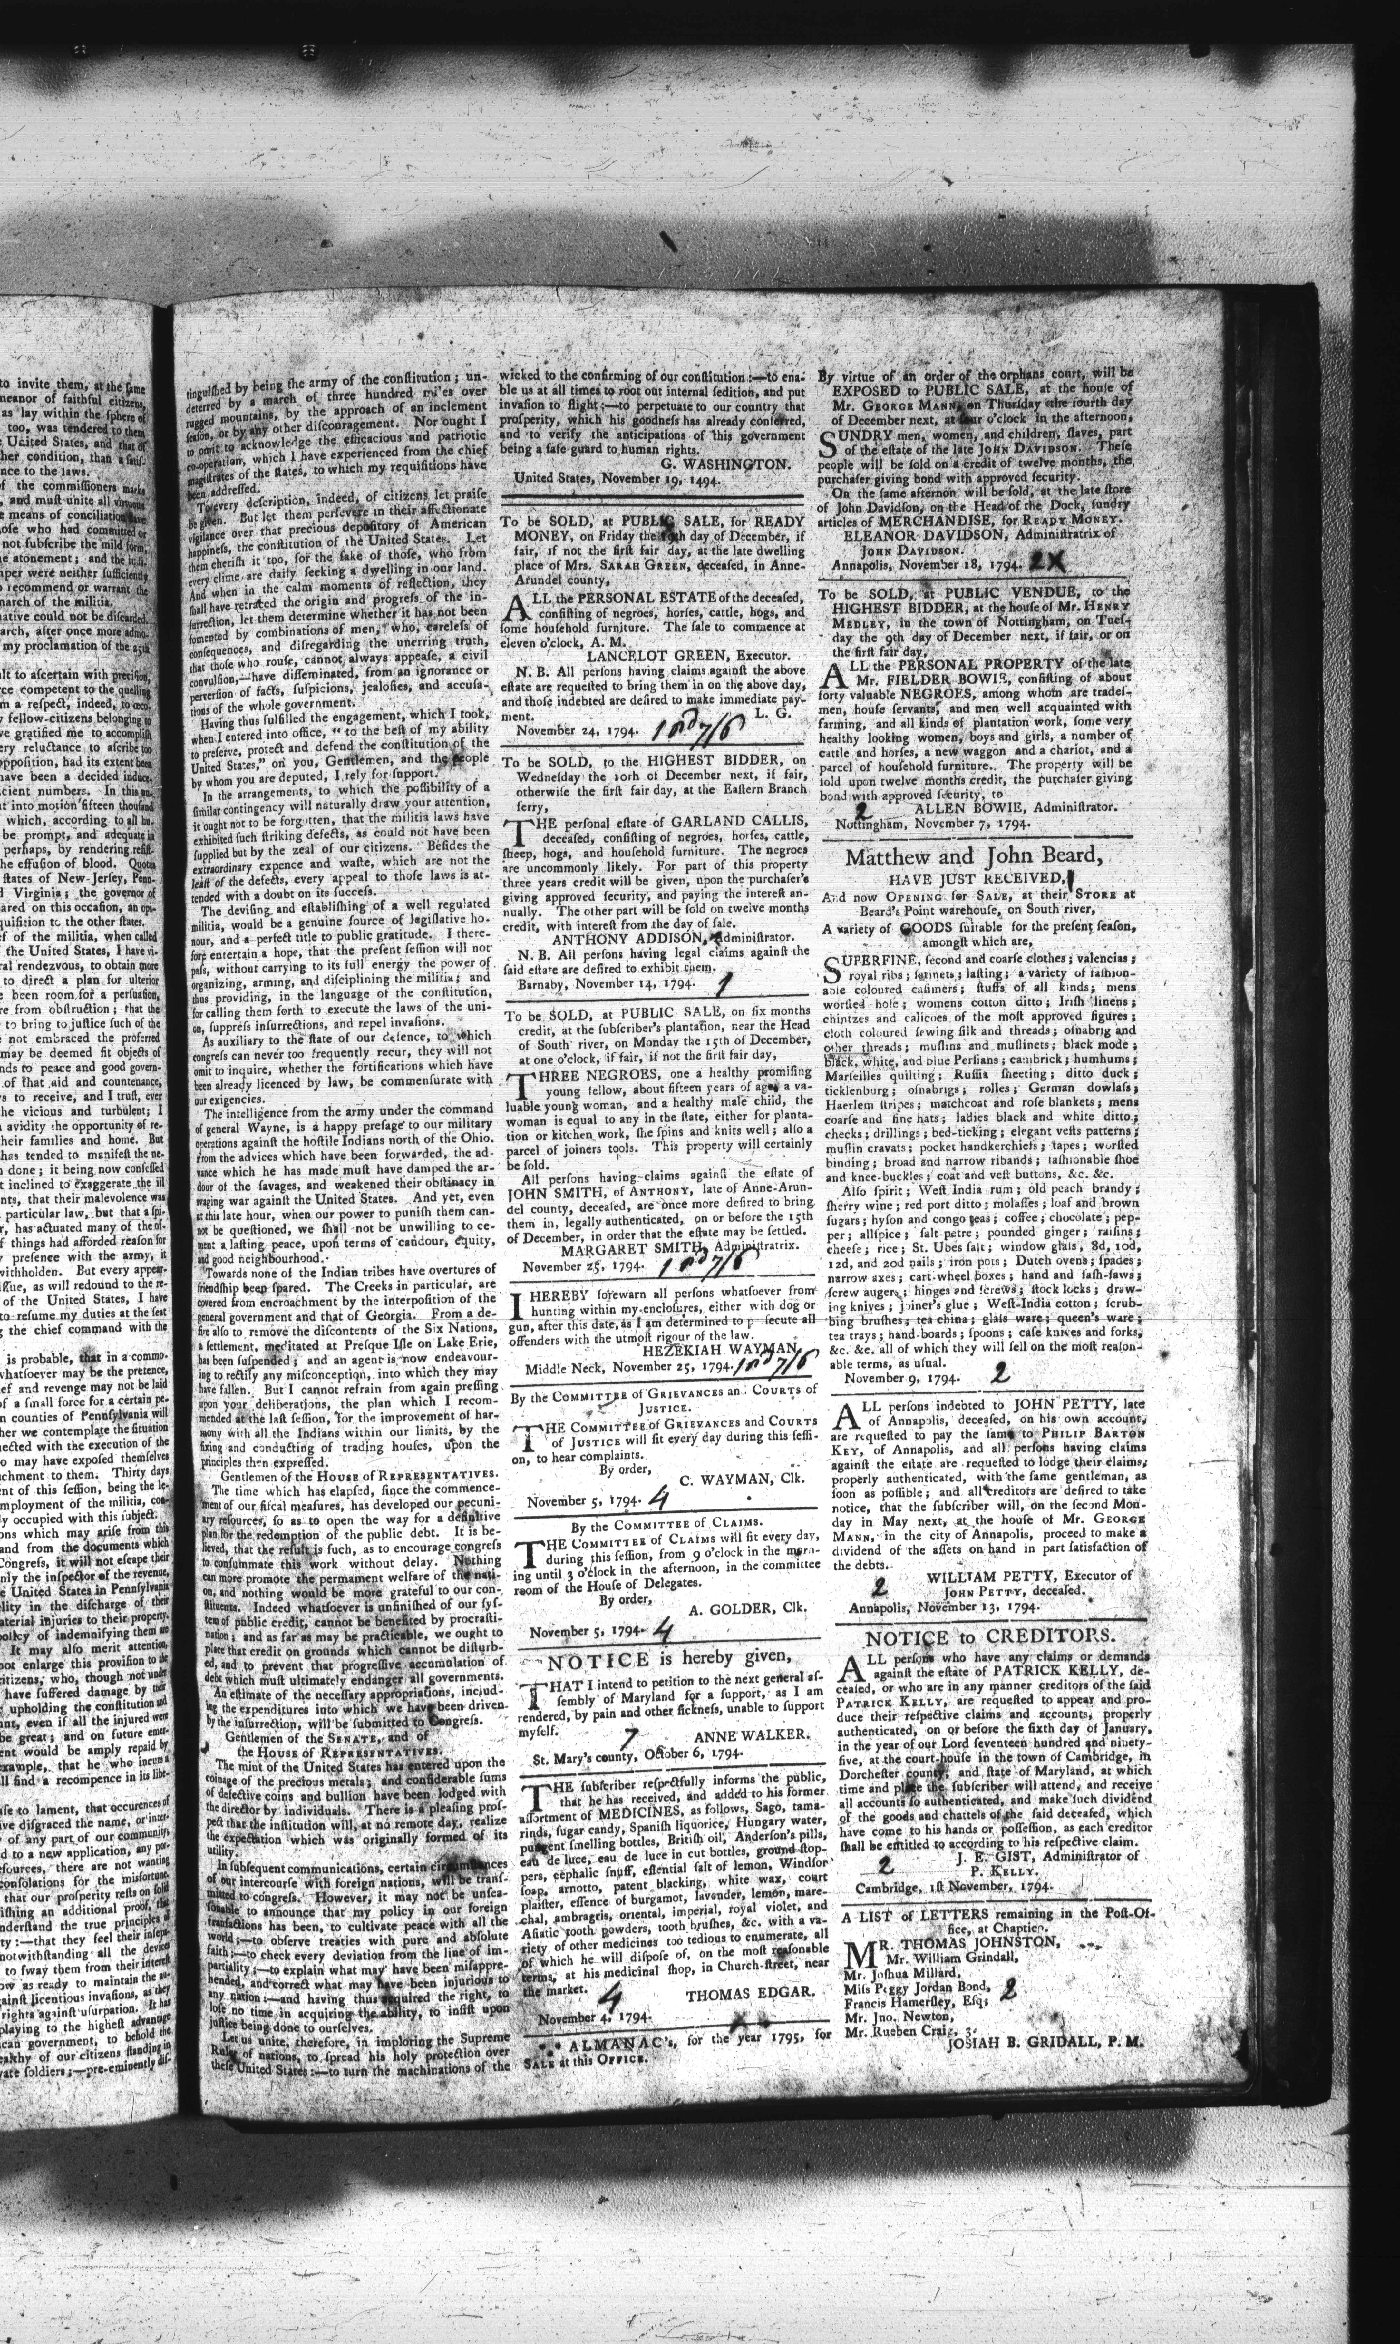 to invite them, at the same
meanor of faithful citizens,
as lay within the sphere of
too, was tendered to them
United States, and that of
her condition, than a satis-
nce to the laws.
f the commissioners marks
and must unite all virtuous
means of conciliation have
ose who had committed or
not subscribe the mild form,
e atonement; and the
aper were neither sufficiently
o recommend or warrant the
narch of the militia.
native could not be discarded.
arch, after once more admo-
my proclamation of the 25th
lt to ascertain with precision,
ce competent to the quelling
m a respect, indeed, to
fellow-citizens belonging to
ve gratified me to accomplish
ery reluctance to ascribe too
pposition, had its extent been
have been a decided induce-
cient numbers. In this
t into motion fifteen thousand
which, according to all hu-
be prompt, and adequate in
perhaps, by rendering resist-
he effusion of blood. Quotas
states of New-Jersey, Penn-
d Virginia; the governor of
ared on this occasion, an opi-
quisition to the other states.
ef of the militia, when called
the United States, I have vi-
ral rendezvous, to obtain more
to direct a plan for ulterior
e been room for a persuasion,
re from obstruction; that the
to bring to justice such of the
not embraced the proferred
may be deemed fit objects of
nds to peace and good govern-
of that aid and countenance,
s to receive, and I trust, ever
he vicious and turbulent; I
avidity the opportunity of re-
heir families and home. But
has tended to manifest the ne-
done; it being now confessed
t inclined to exaggerate the ill
nts, that their malevolence was
particular law, but that a spi-
r, has actuated many of the of-
f things had afforded reason for
y presence with the army, it
withholden. But every appear-
issue, as will redound to the re-
of the United States, I have
to resume my duties at the seat
g the chief command with the
is probable, that in a commo-
whatsoever may be the pretence,
ef and revenge may not be laid
of a small force for a certain pe-
n counties of Pennsylvania will
her we contemplate the situation
nected with the execution of the
o may have exposed themselves
chment to them. Thirty days
ent of this session, being the le-
mployment of the militia, con-
ly occupied with this subject.
ons which may arise from this
and from the documents which
Congress, it will not escape their
nly the inspector of the revenue,
e United States in Pennsylvania
lity in the discharge of their
aterial injuries to their property.
policy of indemnifying them are
It may also merit attention,
not enlarge this provision to the
citizens, who, though not under
have suffered damage by their
upholding the constitution and
nt, even if all the injured were
be great; and on future emer-
ent would be amply repaid by
example, that he who incurs a
ll find a recompence in its libe-
se to lament, that occurences of
ve disgraced the name, or inter-
of any part of our community,
d to a new application, any por-
sources, there are not wanting
consolations for the misfortune.
that our prosperity rests on solid
ishing an additional proof, that
nderstand the true principles of
ty:—that they feel their insepa-
notwithstanding all the devices
to sway them from their interest
ow as ready to maintain the au-
ainst licentious invasions, as they
rights against usurpation. It has
playing to the highest advantage
can government, to behold the
ealthy of our citizens standing in
vate soldiers;—pre-eminently dis-
tinguished by being the army of the constitution; un-
deterred by a march of three hundred miles over
rugged mountains, by the approach of an inclement
season, or by any other discouragement. Nor ought I
to omit to acknowledge the efficacious and patriotic
co-operation, which I have experienced from the chief
magistrates of the states, to which my requisitions have
been addressed.
To every description, indeed, of citizens let praise
be given. But let them persevere in their affectionate
vigilance over that precious depository of American
happiness, the constitution of the United States. Let
them cherish it too, for the sake of those, who from
every clime are daily seeking a dwelling in our land.
And when in the calm moments of reflection, they
shall have retraced the origin and progress of the in-
surrection, let them determine whether it has not been
fomented by combinations of men, who, careless of
consequences, and disregarding the unerring truth,
that those who rouse, cannot always appease, a civil
convulsion,—have disseminated, from an ignorance or
perversion of facts, suspicions, jealosies, and accusa-
tions of the whole government.
Having thus fulfilled the engagement, which I took,
when I entered into office, " to the best of my ability
to preserve, protect and defend the constitution of the
United States," on you, Gentlemen, and the people
by whom you are deputed, I rely for support.
In the arrangements, to which the possibility of a
similar contingency will naturally draw your attention,
it ought not to be forgotten, that the militia laws have
exhibited such striking defects, as could not have been
supplied but by the zeal of our citizens. Besides the
extraordinary expence and waste, which are not the
least of the defects, every appeal to those laws is at-
tended with a doubt on its success.
The devising and establishing of a well regulated
militia, would be a genuine source of legislative ho-
nour, and a perfect title to public gratitude. I there-
fore entertain a hope, that the present session will not
pass, without carrying to its full energy the power of
organizing, arming, and disciplining the militia; and
thus providing, in the language of the constitution,
for calling them forth to execute the laws of the uni-
on, suppress insurrections, and repel invasions.
As auxiliary to the state of our defence, to which
congress can never too frequently recur, they will not
omit to inquire, whether the fortifications which have
been already licenced by law, be commensurate with
our exigencies.
The intelligence from the army under the command
of general Wayne, is a happy presage to our military
operations against the hostile Indians north of the Ohio.
From the advices which have been forwarded, the ad-
vance which he has made must have damped the ar-
dour of the savages, and weakened their obstinacy in
waging war against the United States. And yet, even
at this late hour, when our power to punish them can-
not be questioned, we shall not be unwilling to ce-
ment a lasting peace, upon terms of candour, equity,
and good neighbourhood.
Towards none of the Indian tribes have overtures of
friendship been spared. The Creeks in particular, are
covered from encroachment by the interposition of the
general government and that of Georgia. From a de-
sire also to remove the discontents of the Six Nations,
a settlement, meditated at Presque Isle on Lake Erie,
has been suspended; and an agent is now endeavour-
ing to rectify any misconception, into which they may
have fallen. But I cannot refrain from again pressing
upon your deliberations, the plan which I recom-
mended at the last session, for the improvement of har-
mony with all the Indians within our limits, by the
fixing and conducting of trading houses, upon the
principles then expressed.
Gentlemen of the HOUSE of REPRESENTATIVES.
The time which has elapsed, since the commence-
ment of our fiscal measures, has developed our pecuni-
ary resources, so as to open the way for a definitive
plan for the redemption of the public debt. It is be-
lieved, that the result is such, as to encourage congress
to consummate this work without delay. Nothing
can more promote the permament welfare of the nati-
on, and nothing would be more grateful to our con-
stituents. Indeed whatsoever is unfinished of our sys-
tem of public credit, cannot be benefited by procrasti-
nation; and as far as may be practicable, we ought to
place that credit on grounds which cannot be disturb-
ed, and to prevent that progressive accumulation of
debt which must ultimately endanger all governments.
An estimate of the necessary appropriations, includ-
ing the expenditures into which we have been driven
by the insurrection, will be submitted to Congress.
Gentlemen of the SENATE, and of
the HOUSE of REPRESENTATIVES.
The mint of the United States has entered upon the
coinage of the precious metals; and considerable sums
of defective coins and bullion have been lodged with
the director by individuals. There is a pleasing pros-
pect that the institution will, at no remote day, realize
the expectation which was originally formed of its
utility.
In subsequent communications, certain circumstances
of our intercourse with foreign nations, will be trans-
mitted to congress. However, it may not be unsea-
sonable to announce that my policy in our foreign
transactions has been, to cultivate peace with all the
world;—to observe treaties with pure and absolute
faith;—to check every deviation from the line of im-
partiality;—to explain what may have been misappre-
hended, and correct what may have been injurious to
any nation:—and having thus acquired the right, to
lose no time in acquiring the ability, to insist upon
justice being done to ourselves.
Let us unite, therefore, in imploring the Supreme
Ruler of nations, to spread his holy protection over
these United States:—to turn the machinations of the
wicked to the confirming of our constitution:—to ena-
ble us at all times to root out internal sedition, and put
invasion to flight;—to perpetuate to our country that
prosperity, which his goodness has already conferred,
and to verify the anticipations of this government
being a safe guard to human rights.
G. WASHINGTON.
United States, November 19, 1494.
To be SOLD, at PUBLIC SALE, for READY
MONEY, on Friday the day of December, if
fair, if not the first fair day, at the late dwelling
place of Mrs. SARAH GREEN, deceased, in Anne-
Arundel county,
ALL the PERSONAL ESTATE of the deceased,
consisting of negroes, horses, cattle, hogs, and
some household furniture. The sale to commence at
eleven o'clock, A. M.
LANCELOT GREEN, Executor.
N. B. All persons having claims against the above
estate are requested to bring them in on the above day,
and those indebted are desired to make immediate pay-
ment. L. G.
November 24, 1794. 1 pd 7/6
To be SOLD, to the HIGHEST BIDDER, on
Wednesday the 10th of December next, if fair,
otherwise the first fair day, at the Eastern Branch
ferry,
THE personal estate of GARLAND CALLIS,
deceased, consisting of negroes, horses, cattle,
sheep, hogs, and household furniture. The negroes
are uncommonly likely. For part of this property
three years credit will be given, upon the purchaser's
giving approved security, and paying the interest an-
nually. The other part will be sold on twelve months
credit, with interest from the day of sale.
ANTHONY ADDISON, Administrator.
N. B. All persons having legal claims against the
said estate are desired to exhibit them.
Barnaby, November 14, 1794. 1
To be SOLD, at PUBLIC SALE, on six months
credit, at the subscriber's plantation, near the Head
of South river, on Monday the 15th of December,
at one o'clock, if fair, if not the first fair day,
THREE NEGROES, one a healthy promising
young fellow, about fifteen years of age, a va-
luable young woman, and a healthy male child, the
woman is equal to any in the state, either for planta-
tion or kitchen work, she spins and knits well; also a
parcel of joiners tools. This property will certainly
be sold.
All persons having claims against the estate of
JOHN SMITH, of ANTHONY, late of Anne-Arun-
del county, deceased, are once more desired to bring
them in, legally authenticated, on or before the 15th
of December, in order that the estate may be settled.
MARGARET SMITH, Administratrix.
November 25, 1794. 1 pd 7/6
I HEREBY forewarn all persons whatsoever from
hunting within my enclosures, either with dog or
gun, after this date, as I am determined to p secute all
offenders with the utmost rigour of the law.
HEZEKIAH WAYMAN.
Middle Neck, November 25, 1794. 1 pd 7/6
By the COMMITTEE of GRIEVANCES and COURTS of
JUSTICE.
THE COMMITTEE of GRIEVANCES and COURTS
of JUSTICE will sit every day during this sessi-
on, to hear complaints.
By order,
C. WAYMAN, Clk.
November 5, 1794. 4
By the COMMITTEE of CLAIMS.
THE COMMITTEE of CLAIMS will sit every day,
during this session, from 9 o'clock in the morn-
ing until 3 o'clock in the afternoon, in the committee
room of the House of Delegates.
By order,
A. GOLDER, Clk.
November 5, 1794. 4
NOTICE is hereby given,
THAT I intend to petition to the next general as-
sembly of Maryland for a support, as I am
rendered, by pain and other sickness, unable to support
myself.
7 ANNE WALKER.
St. Mary's county, October 6, 1794.
THE subscriber respectfully informs the public,
that he has received, and added to his former
assortment of MEDICINES, as follows, Sago, tama-
rinds, sugar candy, Spanish liquorice, Hungary water,
pungent smelling bottles, British oil, Anderson's pills,
eau de luce, eau de luce in cut bottles, ground stop-
pers, cephalic snuff, essential salt of lemon, Windsor
soap, arnotto, patent blacking, white wax, court
plaister, essence of burgamot, lavender, lemon, mare-
chal, ambragris, oriental, imperial, royal violet, and
Asiatic tooth powders, tooth brushes, &c. with a va-
riety of other medicines too tedious to enumerate, all
of which he will dispose of, on the most reasonable
terms, at his medicinal shop, in Church-street, near
the market.
4 THOMAS EDGAR.
November 4, 1794.
ALMANAC's, for the year 1795, for
SALE at this OFFICE.
By virtue of an order of the orphans court, will be
EXPOSED to PUBLIC SALE, at the house of
Mr. GEORGE MANN, on Thursday the fourth day
of December next, at four o'clock in the afternoon,
SUNDRY men, women, and children, slaves, part
of the estate of the late JOHN DAVIDSON. These
people will be sold on a credit of twelve months, the
purchaser giving bond with approved security.
On the same afternoon will be sold, at the late store
of John Davidson, on the Head of the Dock, sundry
articles of MERCHANDISE, for READY MONEY.
ELEANOR DAVIDSON, Administratrix of
JOHN DAVIDSON.
Annapolis, November 18, 1794. 2X
To be SOLD, at PUBLIC VENDUE, to the
HIGHEST BIDDER, at the house of Mr. HENRY
MEDLEY, in the town of Nottingham, on Tues-
day the 9th day of December next, if fair, or on
the first fair day,
ALL the PERSONAL PROPERTY of the late
Mr. FIELDER BOWIE, consisting of about
forty valuable NEGROES, among whom are trades-
men, house servants, and men well acquainted with
farming, and all kinds of plantation work, some very
healthy looking women, boys and girls, a number of
cattle and horses, a new waggon and a chariot, and a
parcel of household furniture. The property will be
sold upon twelve months credit, the purchaser giving
bond with approved security, to
2 ALLEN BOWIE, Administrator.
Nottingham, November 7, 1794.
Matthew and John Beard,
HAVE JUST RECEIVED,
And now OPENING for SALE, at their STORE at
Beard's Point warehouse, on South river,
A variety of GOODS suitable for the present season,
amongst which are,
SUPERFINE, second and coarse clothes; valencias;
royal ribs; sattnets; lasting; a variety of fashion-
able coloured casimers; stuffs of all kinds; mens
worsted hose; womens cotton ditto; Irish linens;
chintzes and calicoes of the most approved figures;
cloth coloured sewing silk and threads; osnabrig and
other threads; muslins and muslinets; black mode;
black, white, and blue Persians; cambrick; humhums;
Marseilles quilting; Russia sheeting; ditto duck;
ticklenburg; osnabrigs; rolles; German dowlass;
Haerlem stripes; matchcoat and rose blankets; mens
coarse and fine hats; ladies black and white ditto;
checks; drillings; bed-ticking; elegant vests patterns;
muslin cravats; pocket handkerchiefs; tapes; worsted
binding; broad and narrow ribands; fashionable shoe
and knee-buckles; coat and vest buttons, &c. &c.
Also spirit; West India rum; old peach brandy;
sherry wine; red port ditto; molasses; loaf and brown
sugars; hyson and congo teas; coffee; chocolate; pep-
per; allspice; salt petre; pounded ginger; raisins;
cheese; rice; St. Ubes salt; window glass, 8d, 10d,
12d, and 20d nails; iron pots; Dutch ovens; spades;
narrow axes; cart-wheel boxes; hand and sash-saws;
screw augers; hinges and screws; stock locks; draw-
ing knives; joiner's glue; West-India cotton; scrub-
bing brushes; tea china; glass ware; queen's ware;
tea trays; hand-boards; spoons; case knives and forks,
&c. &c. all of which they will sell on the most reason-
able terms, as usual.
November 9, 1794. 2
ALL persons indebted to JOHN PETTY, late
of Annapolis, deceased, on his own account,
are requested to pay the same to PHILIP BARTON
KEY, of Annapolis, and all persons having claims
against the estate are requested to lodge their claims,
properly authenticated, with the same gentleman, as
soon as possible; and all creditors are desired to take
notice, that the subscriber will, on the second Mon-
day in May next, at the house of Mr. GEORGE
MANN, in the city of Annapolis, proceed to make a
dividend of the assets on hand in part satisfaction of
the debts.
2 WILLIAM PETTY, Executor of
JOHN PETTY, deceased.
Annapolis, November 13, 1794.
NOTICE to CREDITORS.
ALL persons who have any claims or demands
against the estate of PATRICK KELLY, de-
ceased, or who are in any manner creditors of the said
PATRICK KELLY, are requested to appear and pro-
duce their respective claims and accounts, properly
authenticated, on or before the sixth day of January,
in the year of our Lord seventeen hundred and ninety-
five, at the court-house in the town of Cambridge, in
Dorchester county, and state of Maryland, at which
time and place the subscriber will attend, and receive
all accounts so authenticated, and make such dividend
of the goods and chattels of the said deceased, which
have come to his hands or possession, as each creditor
shall be entitled to according to his respective claim.
2 J. E. GIST, Administrator of
P. KELLY.
Cambridge, 1st November, 1794.
A LIST of LETTERS remaining in the Post-Of-
fice, at Chaptico.
MR. THOMAS JOHNSTON,
Mr. William Grindall,
Mr. Joshua Millard,
Miss Peggy Jordan Bond,
Francis Hamersley, Esq; 2
Mr. Jno. Newton,
Mr. Rueben Craig, 3.
JOSIAH B. GRIDALL, P. M.